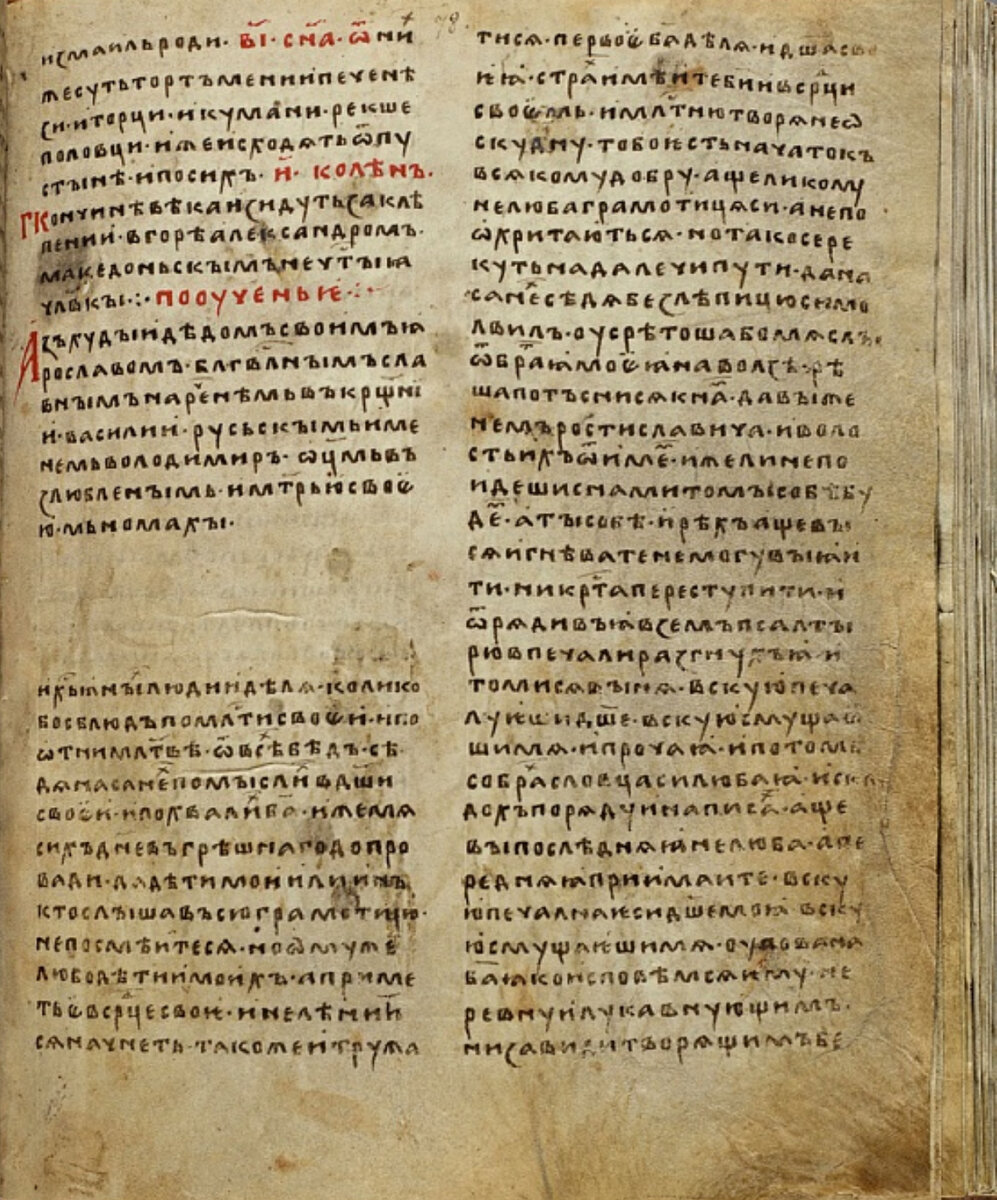 78.
измаилъ роди· в҃і· сн҃а· ѿ ни
же суть тортъмени и печенѣ
зи· и торци· и кумани· рекше
половци· иже исходѧть ѿ пу
стынѣ· и по сихъ· и҃· колѣнъ·
къ
кончинѣ вѣка изидуть заклѣ
пении· в горѣ александромъ·
македоньскымъ нечⷭ҇тыꙗ
члв҃кы·:· пооученьѥ·:·
Азъ худыи дѣдомъ своимъ ꙗ
рославомъ· блгⷭ҇влнымъ сла
внымъ нареⷱ҇нѣмь въ крⷭ҇щні
и· василии· русьскымь име
немь володимиръ· ѿц҃мь въ
злюбленымь· и мт҃рью своѥ
ю· мьномахы·
и хрⷭ҇ьꙗныⷯ людии дѣлѧ· колико
бо сблюдъ по млⷭ҇ти своѥи· и по
ѡтни млт҃вѣ· ѿ всѣⷯ бѣдъ· сѣ
дѧ на санеⷯ помыслиⷯ в дш҃и
своѥи· и похвалиⷯ б҃а· иже мѧ
сихъ дневъ грѣшнаго допро
вади· да дѣти мои или инъ
кто слышавъ сю грамотицю·
не посмѣитесѧ· но ѡмуже
любо дѣтии моихъ· а приме
ть ѥ в срⷣце своѥ· и не лѣнити
сѧ начнеть· тако же и тружа
тисѧ· первоѥ б҃а дѣлѧ· и дш҃а своѥ
ꙗ· страⷯ имѣите б҃ии в срⷣци
своѥмь· и млⷭ҇тню творѧ неѡ
скудну· то бо ѥсть начатокъ
всѧкому добру· аще ли кому
не люба грамотицѧ си· а не по
ѡхритаютьсѧ· но тако се ре
куть на далечи пути· да на
санеⷯ сѣдѧ безлѣпицю си мо
лвилъ· оусрѣтоша бо мѧ слы·
ѿ братꙗ моѥꙗ на волзѣ· рѣ
ша потъснисѧ к на· да выже
немъ ростиславича· и воло
сть ихъ ѿимеⷨ· иже ли не по
идеши с нами то мы собѣ бу
деⷨ· а ты собѣ· и рѣхъ аще вы
сѧ и гнѣваѥте не могу вы ꙗ и
ти· ни крⷭ҇та переступити· и
ѿрѧдивъ ꙗ вземъ псалты
рю в печали разгнухъ ꙗ и
то ми сѧ вынѧ· вскую печа
луѥши дш҃е· вскую смущаѥ
ши мѧ· и прочаꙗ· и потомь
собрⷯа словца си любаꙗ· и скла
дохъ по рѧду и написаⷯ· аще
вы послѣднѧꙗ не люба· а пе
реднѧꙗ приимаите· вску
ю печална ѥси дш҃е моꙗ вску
ю смущаѥши мѧ· оуповаи на
б҃а ꙗко исповѣмсѧ ѥму· не
ревнуи лукавнующимъ·
ни завиди творѧщимъ бе